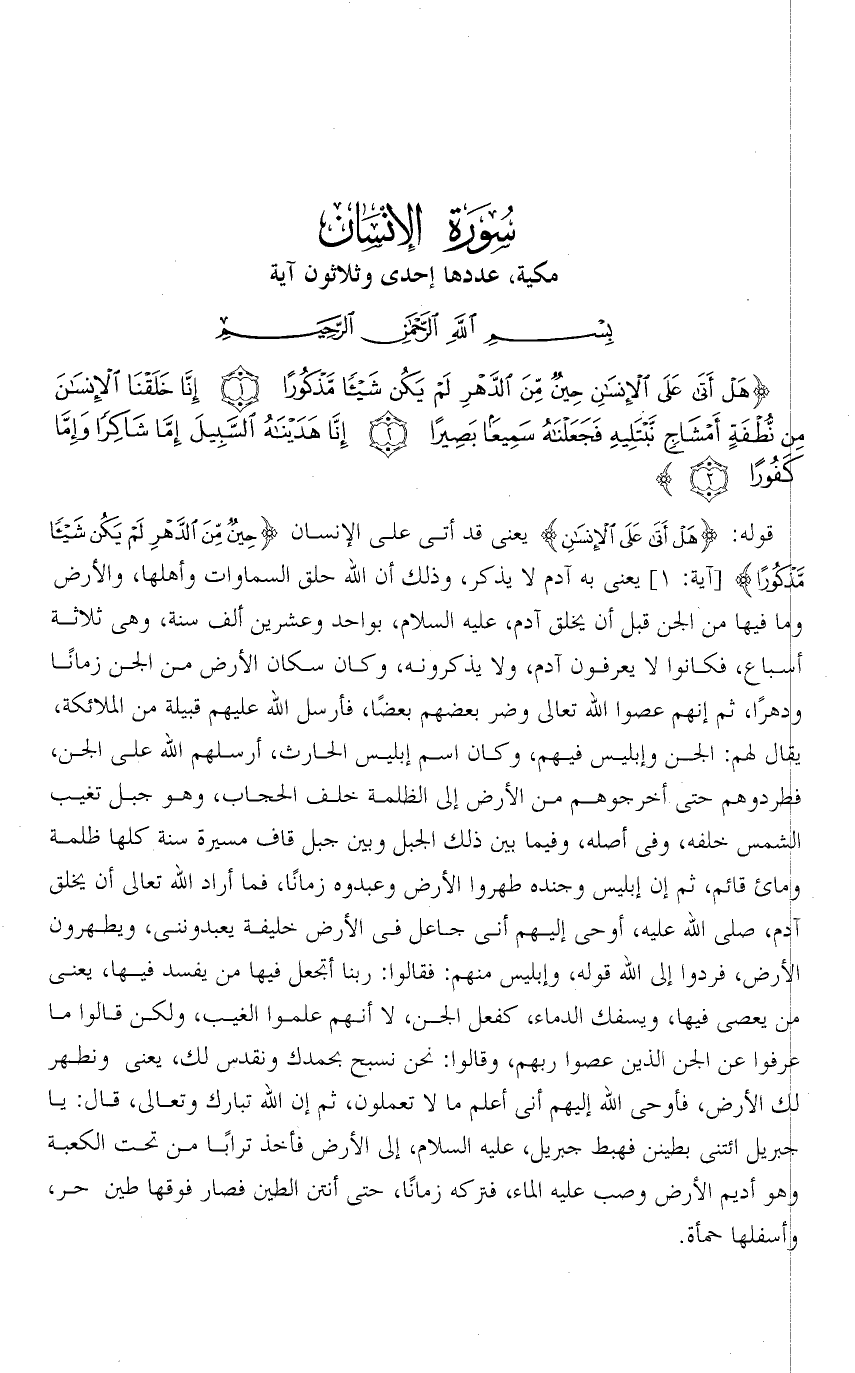 سُورَة الإِنْسَان
مكية، عددها إحدى وثلاثون آية
بِسْمِ اللَّهِ الرَّحْمَٰنِ الرَّحِيمِ
﴿هَلْ أَتَىٰ عَلَى ٱلْإِنسَٰنِ حِينٌ مِّنَ ٱلدَّهْرِ لَمْ يَكُن شَيْـًٔا مَّذْكُورًا ١ إِنَّا خَلَقْنَا ٱلْإِنسَٰنَ
مِن نُّطْفَةٍ أَمْشَاجٍ نَّبْتَلِيهِ فَجَعَلْنَٰهُ سَمِيعًۢا بَصِيرًا ٢ إِنَّا هَدَيْنَٰهُ ٱلسَّبِيلَ إِمَّا شَاكِرًا وَإِمَّا
كَفُورًا ٣ ﴾
قوله: ﴿هَلْ أَتَىٰ عَلَى ٱلْإِنسَٰنِ﴾ يعنى قد أتـى علـى الإنسـان ﴿حِينٌ مِّنَ ٱلدَّهْرِ لَمْ يَكُن شَيْـًٔا
مَّذْكُورًا﴾ [آية: ١] يعنى به آدم لا يذكر، وذلك أن الله حلق السماوات وأهلها، والأرض
وما فيها من الجن قبل أن يخلق آدم، عليه السلام، بواحد وعشرين ألف سنة، وهى ثلاثـة
أسباع، فكانوا لا يعرفون آدم، ولا يذكرونه، وكان سكان الأرض من الجن زمانًا
ودهرًا، ثم إنهم عصوا الله تعالى وضر بعضهم بعضًا، فأرسل الله عليهم قبيلة من الملائكة،
يقال لهم: الجن وإبليس فيهم، وكان اسم إبليس الحارث، أرسلهم الله على الجن،
فطردوهم حتى أخرجوهم من الأرض إلى الظلمة خلف الحجاب، وهو جبل تغيب
الشمس خلفه، وفى أصله، وفيما بين ذلك الجبل وبين جبل قاف مسيرة سنة كلها ظلمة
ومائ قائم، ثم إن إبليس وجنده طهروا الأرض وعبدوه زمانًا، فما أراد الله تعالى أن يخلق
آدم، صلى الله عليه، أوحى إليهم أنى جاعل فى الأرض خليفة يعبدوننى، ويطهرون
الأرض، فردوا إلى الله قوله، وإبليس منهم: فقالوا: ربنا أتجعل فيها من يفسد فيها، يعنى
من يعصى فيها، ويسفك الدماء، كفعل الجن، لا أنهم علموا الغيب، ولكن قالوا ما
عرفوا عن الجن الذين عصوا ربهم، وقالوا: نحن نسبح بحمدك ونقدس لك، يعنى ونطهر
لك الأرض، فأوحى الله إليهم أنى أعلم ما لا تعملون، ثم إن الله تبارك وتعالى، قال: يا
جبريل ائتنى بطينن فهبط جبريل، عليه السلام، إلى الأرض فأخذ ترابًا من تحت الكعبة
وهو أديم الأرض وصب عليه الماء، فتركه زمانًا، حتى أنتن الطين فصار فوقها طين حر،
وأسفلها حمأة.